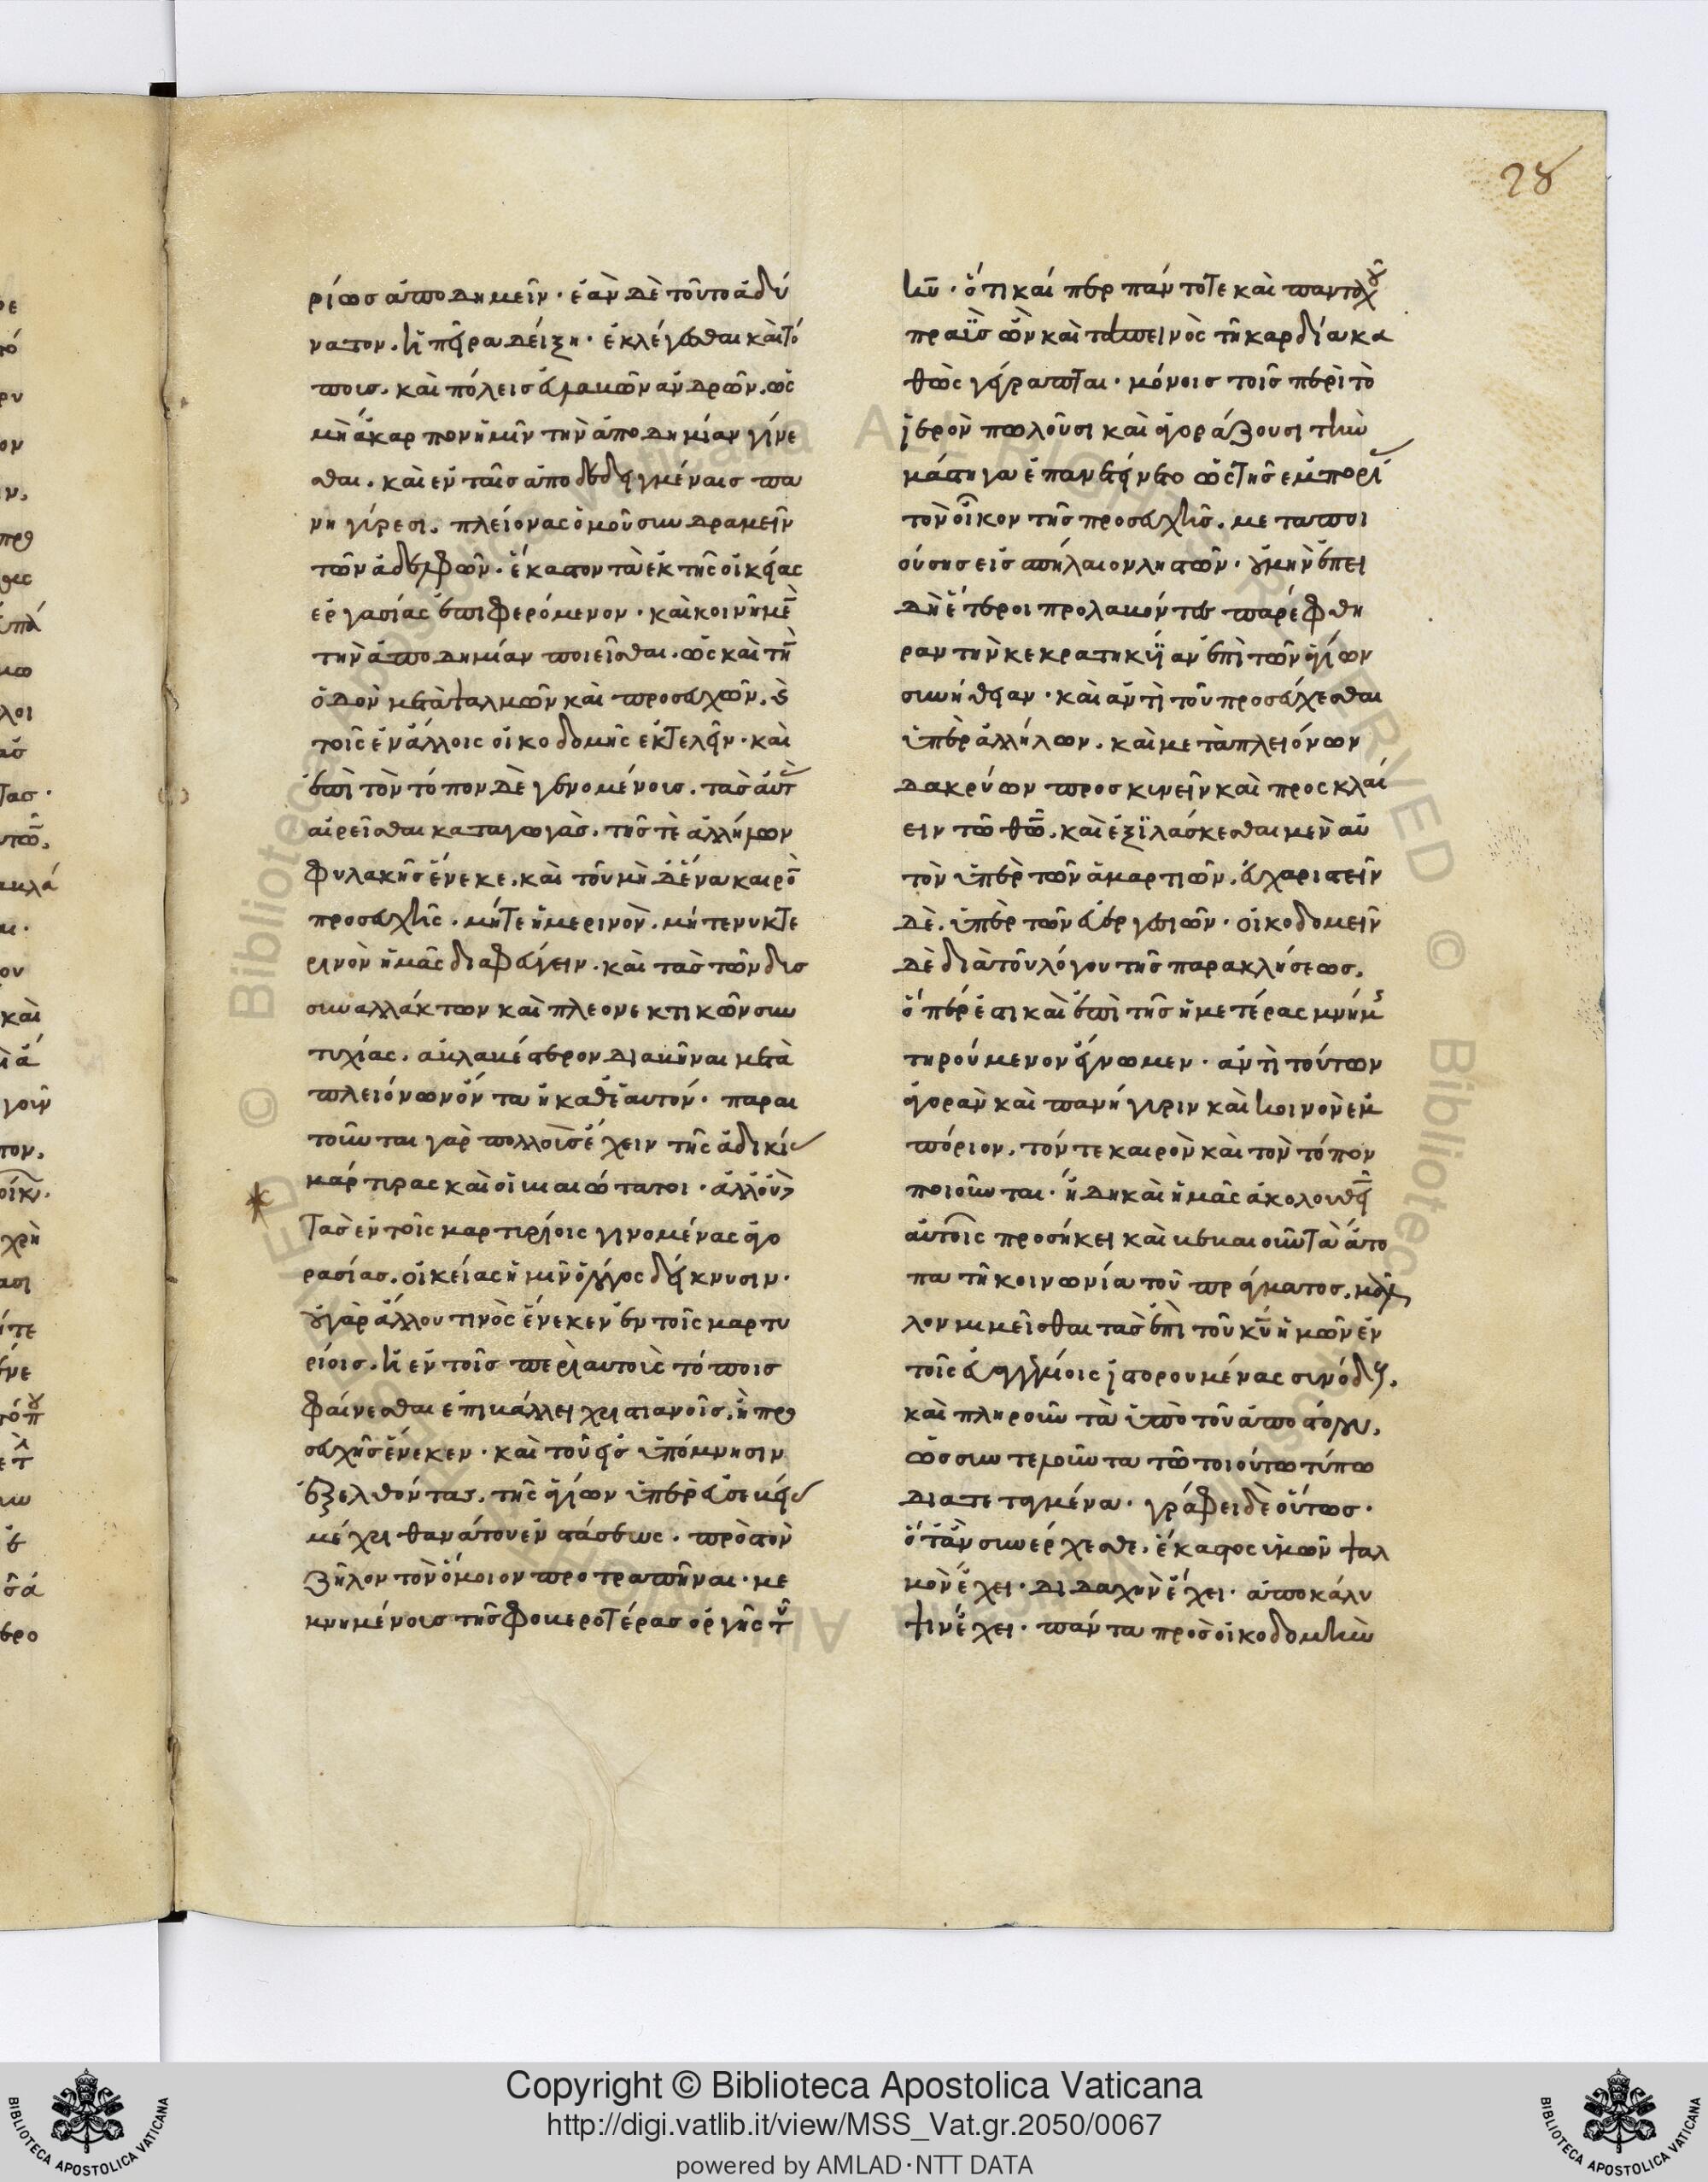 28
ρίωσ ἀποδημεῖν· ἐὰν δὲ τοῦτο ἀδύ
νατον. ἢ πέρα δέιξη· ἐκλέγεσθαι καὶ τό
ποισ. καὶ πόλεισ
μὴ ἄκαρπον ἡμῖν τὴν ἀποδημίαν γίνε
σθαι. καὶ ἐν ταῖσ ἀποδεδεγμέναισ πα
νηγύρεσι. πλείονας ὁμοῦ συνδραμεῖν
τῶν ἀδελφῶν. ἕκαστον τὰ ἐκ τῆς οἰκείας
ἐργασίας ἐπιφερόμενον· καὶ κοινῆ μὲ
τὴν ἀποδημίαν ποιεῖσθαι. ὡς καὶ τὴ
ὁδὸν μετὰ ψαλμῶν καὶ προσευχῶν. ϗ
τοῖς ἐν ἄλλοις οἰκοδομῆς ἐκτελεῖν· καὶ
ἐπὶ τὸν τόπον δὲ γενομένοισ. τὰσ αὐτ
αἱρεῖσθαι καταγωγὰσ. τῆσ τὲ ἀλλήλων
φυλακῆσ ἕνεκε. καὶ τοῦ μὴ δὲ ἕνα καιρὸ
προσευχῆς. μήτε ἡμερινὸν. μή τε νυκτε
ρινὸν ἡμᾶς διαφεύγειν. καὶ τὰσ τῶν δυσ
συναλλάκτων καὶ πλεονεκτικῶν συν
τυχίας. εὐλαβέστερον διαβῆναι μετὰ
πλειόνων ὄντα ἢ καθ' ἑαυτόν· παραι
τοῦνται γὰρ πολλοῖσ ἔχειν τῆς ἀδικί
μάρτυρας καὶ οἱ βιαιώτατοι. ἀλλ' οὐδὲ
τὰσ ἐν τοῖς μαρτυρίοις γινομένας ἀγο
ρασίας. οἰκείας ἡμῖν ὁ λόγος δείκνυσιν·
οὐ γὰρ ἄλλου τινὸς ἕνεκεν ἐν τοῖς μαρτυ
ρίοισ. ἢ ἐν τοῖσ περὶ αυτοὺς τόποισ
φαίνεσθαι ἐπιβάλλει χριστιανοῖσ. ἢ προ
σευχῆσ ἕνεκεν· καὶ τοῦ εἰς ὑπόμνησιν
ἐξελθόντασ. τῆς ἁγίων ὑπὲρ εὐσεβεί
μέχρι θανάτου ἐνστάσεως. πρὸσ τὸν
ζῆλον τὸν ὅμοιον προτραπῆναι· με
μνημένοισ τῆσ φοβεροτέρασ ὀργῆς τοῦ
κυ̅· ὅτι καίπερ πάντοτε καὶ πανταχοῦ
πραῢσ ὢν καὶ ταπεινὸς τῆ καρδία κα
θὼς γέγραπται· μόνοισ τοῖσ περὶ τὸ
ἱερὸν πωλοῦσι καὶ ἀγοράζουσι τὴν
μάστιγα ἐπανετείνετο ὡς τῆσ ἐμπορί
τὸν οἶκον τῆσ προσευχῆσ. μεταποι
ούσησ εἰσ σπήλαιον ληστῶν· οὐ μὴν ἐπει
δὴ ἕτεροι προλαβόντεσ παρέφθη
ραν τὴν κεκρατηκυῖαν ἐπὶ τῶν ἁγίων
συνήθειαν· καὶ ἀντὶ τοῦ προσεύχεσθαι
ὑπὲρ ἀλλήλων. καὶ μετὰ πλειόνων
δακρύων προσκυνεῖν καὶ προςκλαί
ειν τῶ θω̅. καὶ ἐξϊλάσκεσθαι μὲν αὐ
τὸν ὑπὲρ τῶν ἁμαρτιῶν. εὐχαριστεῖν
δὲ. ὑπὲρ τῶν εὐεργεσιῶν· οἰκοδομεῖν
δὲ διὰ τοῦ λόγου τῆσ παρακλήσεωσ.
ὅπερ ἔτι καὶ ἐπὶ τῆσ ἡμετέρας μνήμ
τηρούμενον ἔγνωμεν· ἀντὶ τούτων
ἀγορὰν καὶ πανήγυριν καὶ κοινὸν ἐμ
πόριον. τόν τε καιρὸν καὶ τὸν τόπον
ποιοῦνται. ἤδη καὶ ἡμᾶς ἀκολουθεῖ
αὐτοῖς προσήκει καὶ βεβαιοῦν τὰ ἄτο
πα τῆ κοινωνία τοῦ πράγματοσ. μᾶλ
λον μιμεῖσθαι τὰσ ἐπὶ τοῦ κυ̅ ἡμῶν ἐν
τοῖς εὐαγγελίοις ἱστορουμένας συνόδους.
καὶ πληροῦν τὰ ὑπὸ τοῦ ἀποστόλου.
ὡσ συντελοῦντα τῶ τοιούτω τύπω
διατεταγμένα· γράφει δὲ οὕτωσ·
ὅταν συνέρχεσθε. ἕκαστος ὑμῶν ψαλ
μὸν ἔχει· διδαχὴν ἔχει· ἀποκάλυ
ψιν ἔχει· πάντα πρὸσ οἰκοδομὴν
Copyright © Biblioteca Apostolica Vaticana
http://digi.vatlib.it/view/MSS_Vat.gr.2050/0067
powered by AMLAD·NTT DATA
BIBLIOTECA APOSTOLICA VATICANA
BIBLIOTECA APOSTOLICA VATICANA